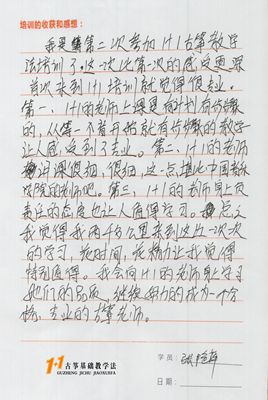 培训的收获和感想：
我是第二次参加1+1古筝教学
法培训了。这一次比第一次的感受更深
首次来到1+1培训就觉得很专业。
第一、1+1的老师上课是有计划有步骤
的，从第一个音开始就有步骤的教学
让人感受到了专业。第二、1+1的老师
讲课很细，很细，这一点
的老师吧。第三、1+1的老师身上负
责任的态度也让人值得学习。总之
我觉得我两千多公里来到这儿一次一次
的学习，花时间，花精力让我觉得
特别值得。我会向1+1的老师身上学习
她们的品质，继续努力的成为一个合
格，专业的古筝老师。
1+1 古筝基础教学法
GUZHENG JICHU JIAOXUEFA
学员：
日期：